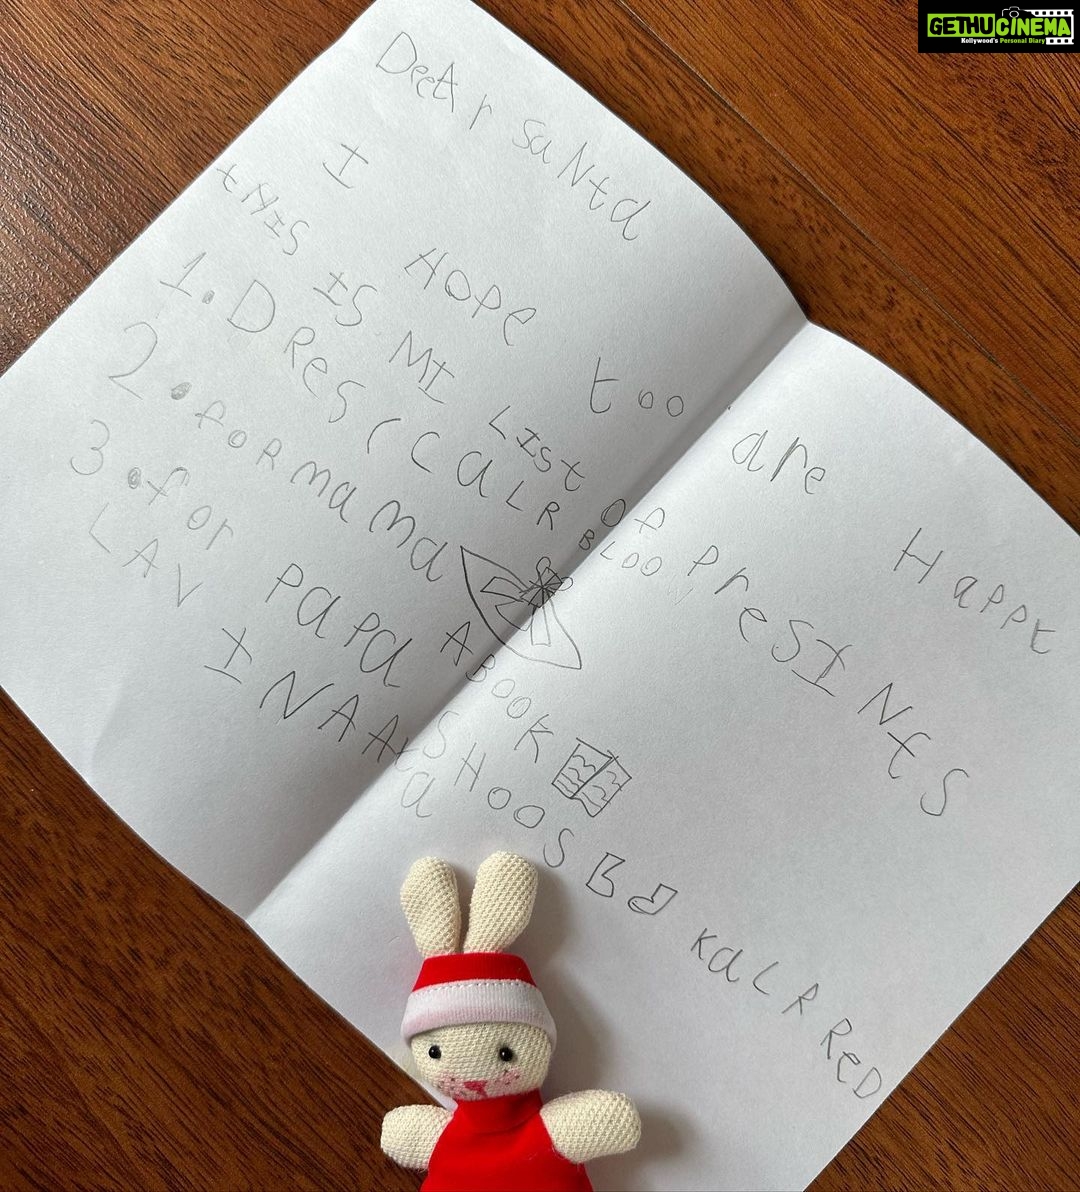 GETHUCINEMA
Kollywood's Personal Diary
DeeAr saNta
I HOPe too are HaPPt
tHIS IS MI LISt Of PreSINtS
1. DReS (CaLR BLOO
2. foR mama
3. for PaPa A BOOK
SHOOS KaLR ReD
LAV